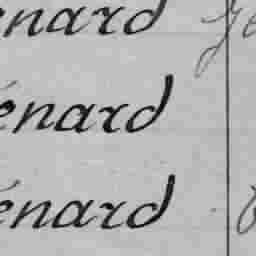 énard
énard
énard